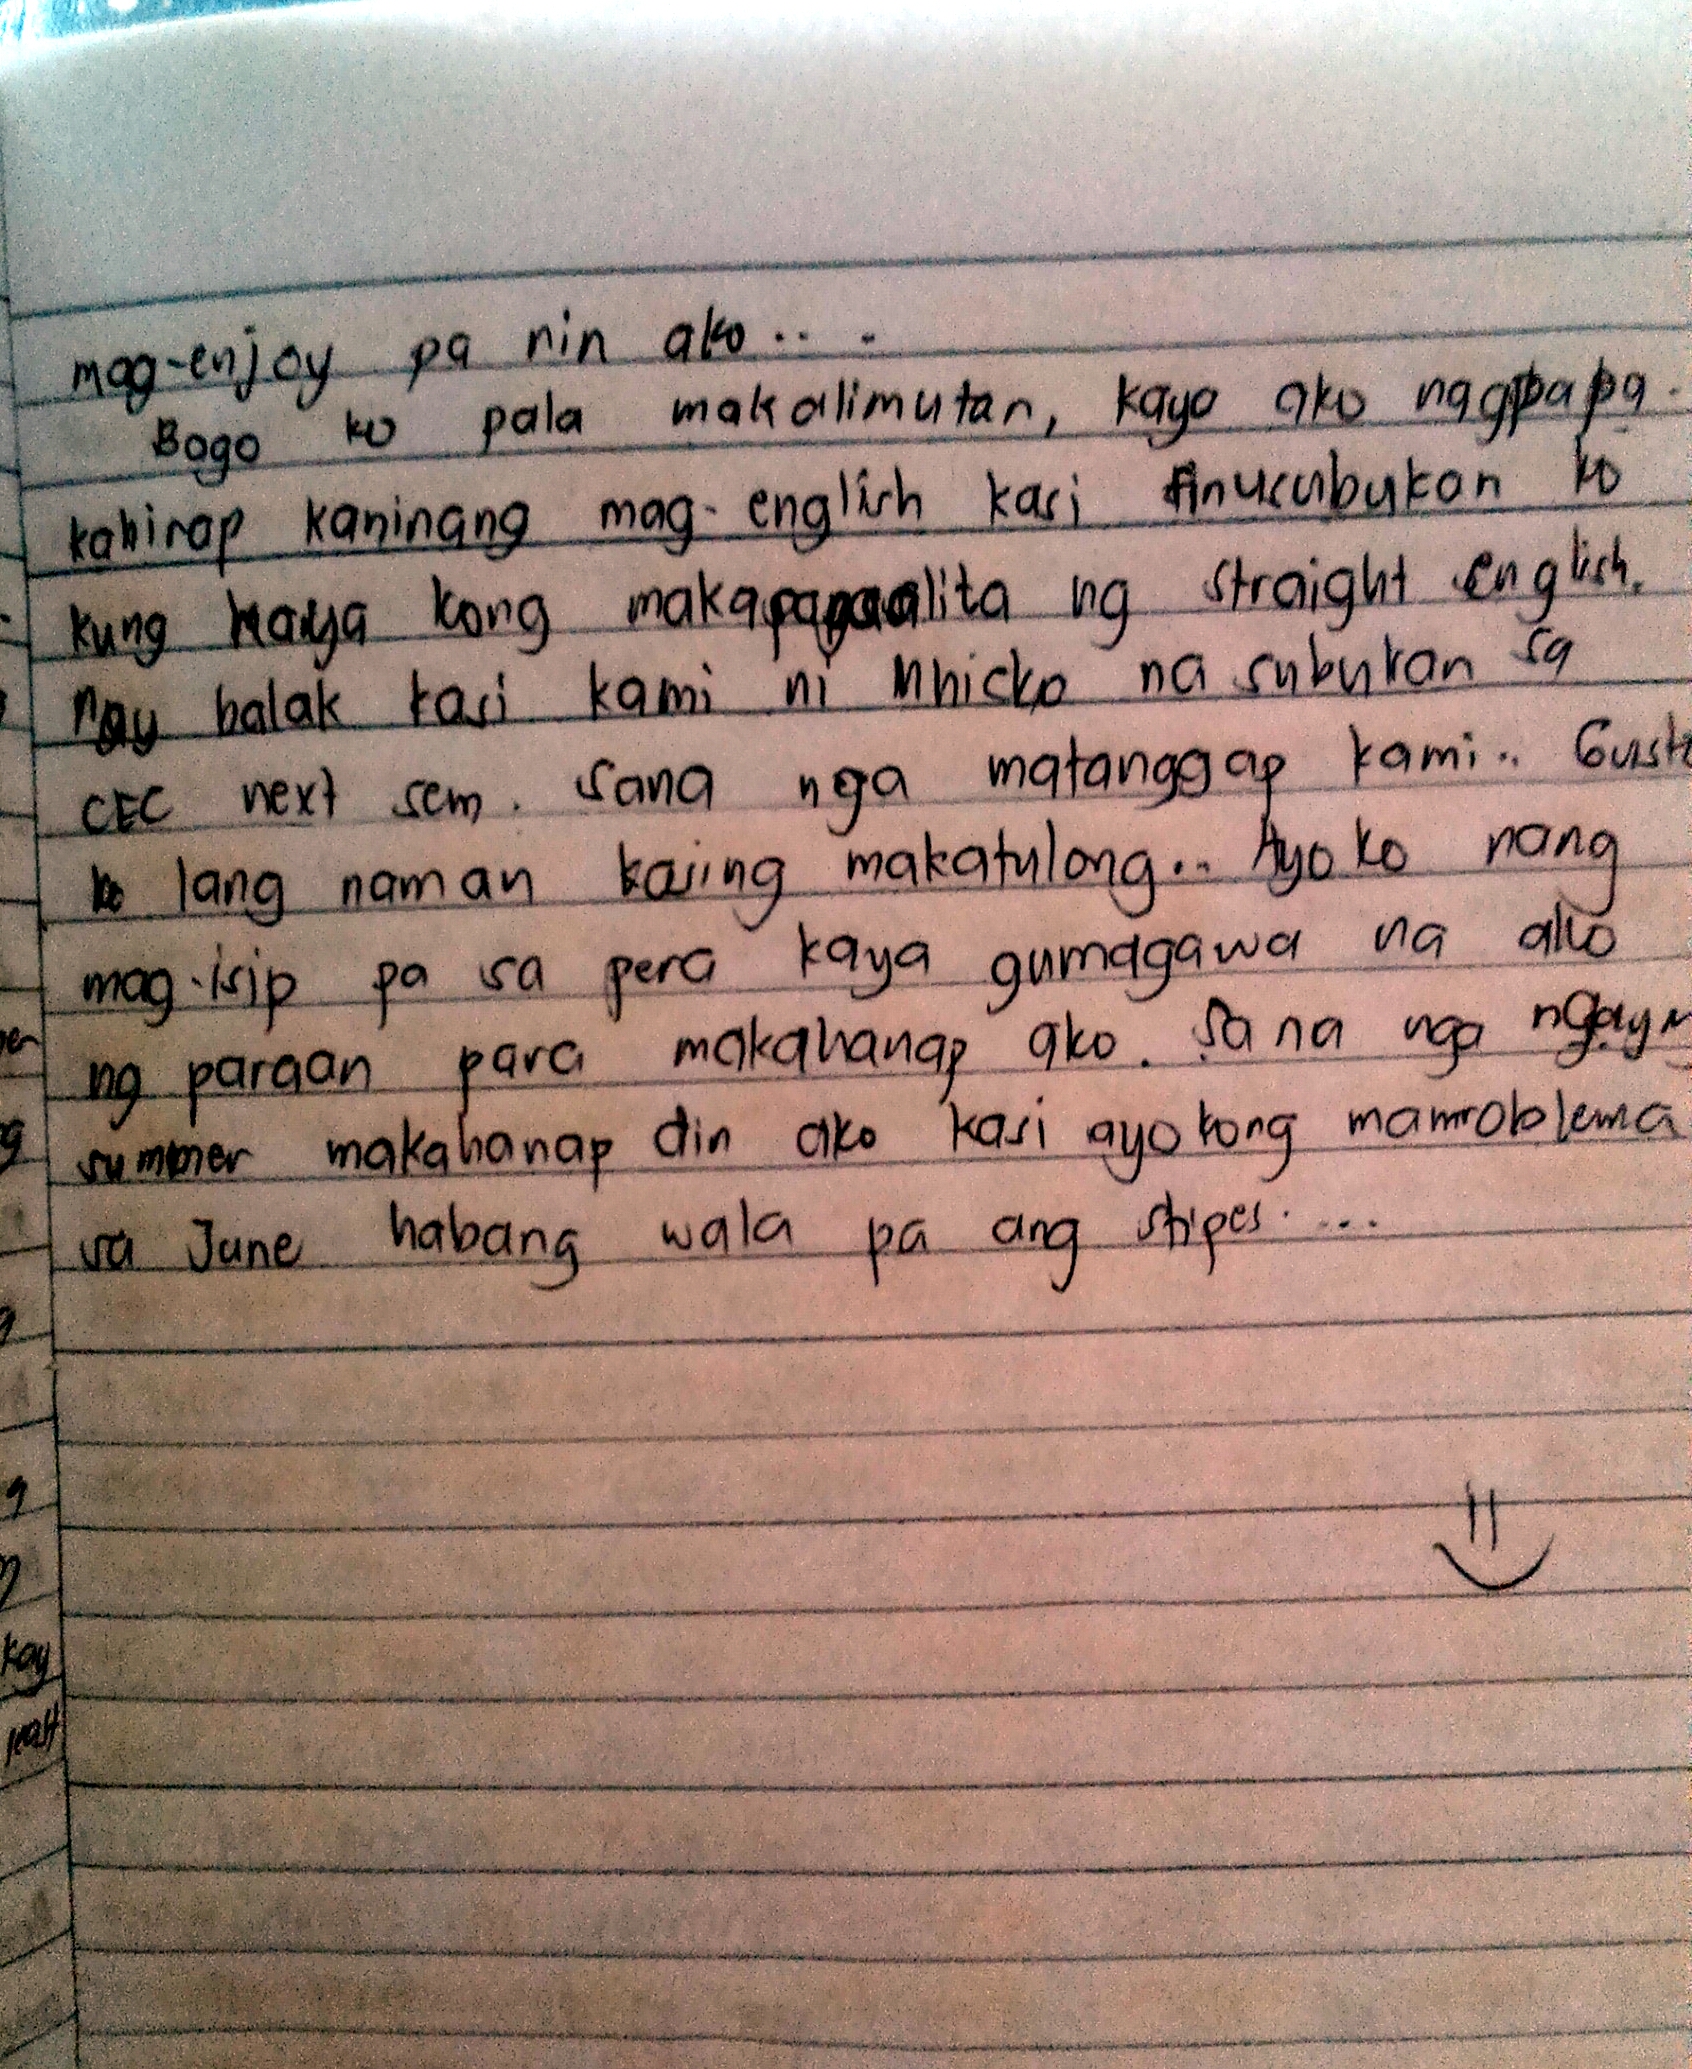 mag-enjoy pa rin ako.. .
Bago ko pala makalimutan, kaya ako nagpapa-
kahirap kaninang mag-english kasi sinusubukan ko
kung kaya kong makapagsalita ng straight english.
may balak kasi kami ni Mhicko na subukan sa
CEC next sem. Sana nga matanggap kami.. Gusto
ko lang naman kasing makatulong.. Ayoko nang
mag-isip pa sa pera kaya gumagawa na ako
ng paraan para makahanap ako. Sana nga ngayn
summer makahanap din ako kasi ayokong mamroblema
sa June habang wala pa ang stipes. ...